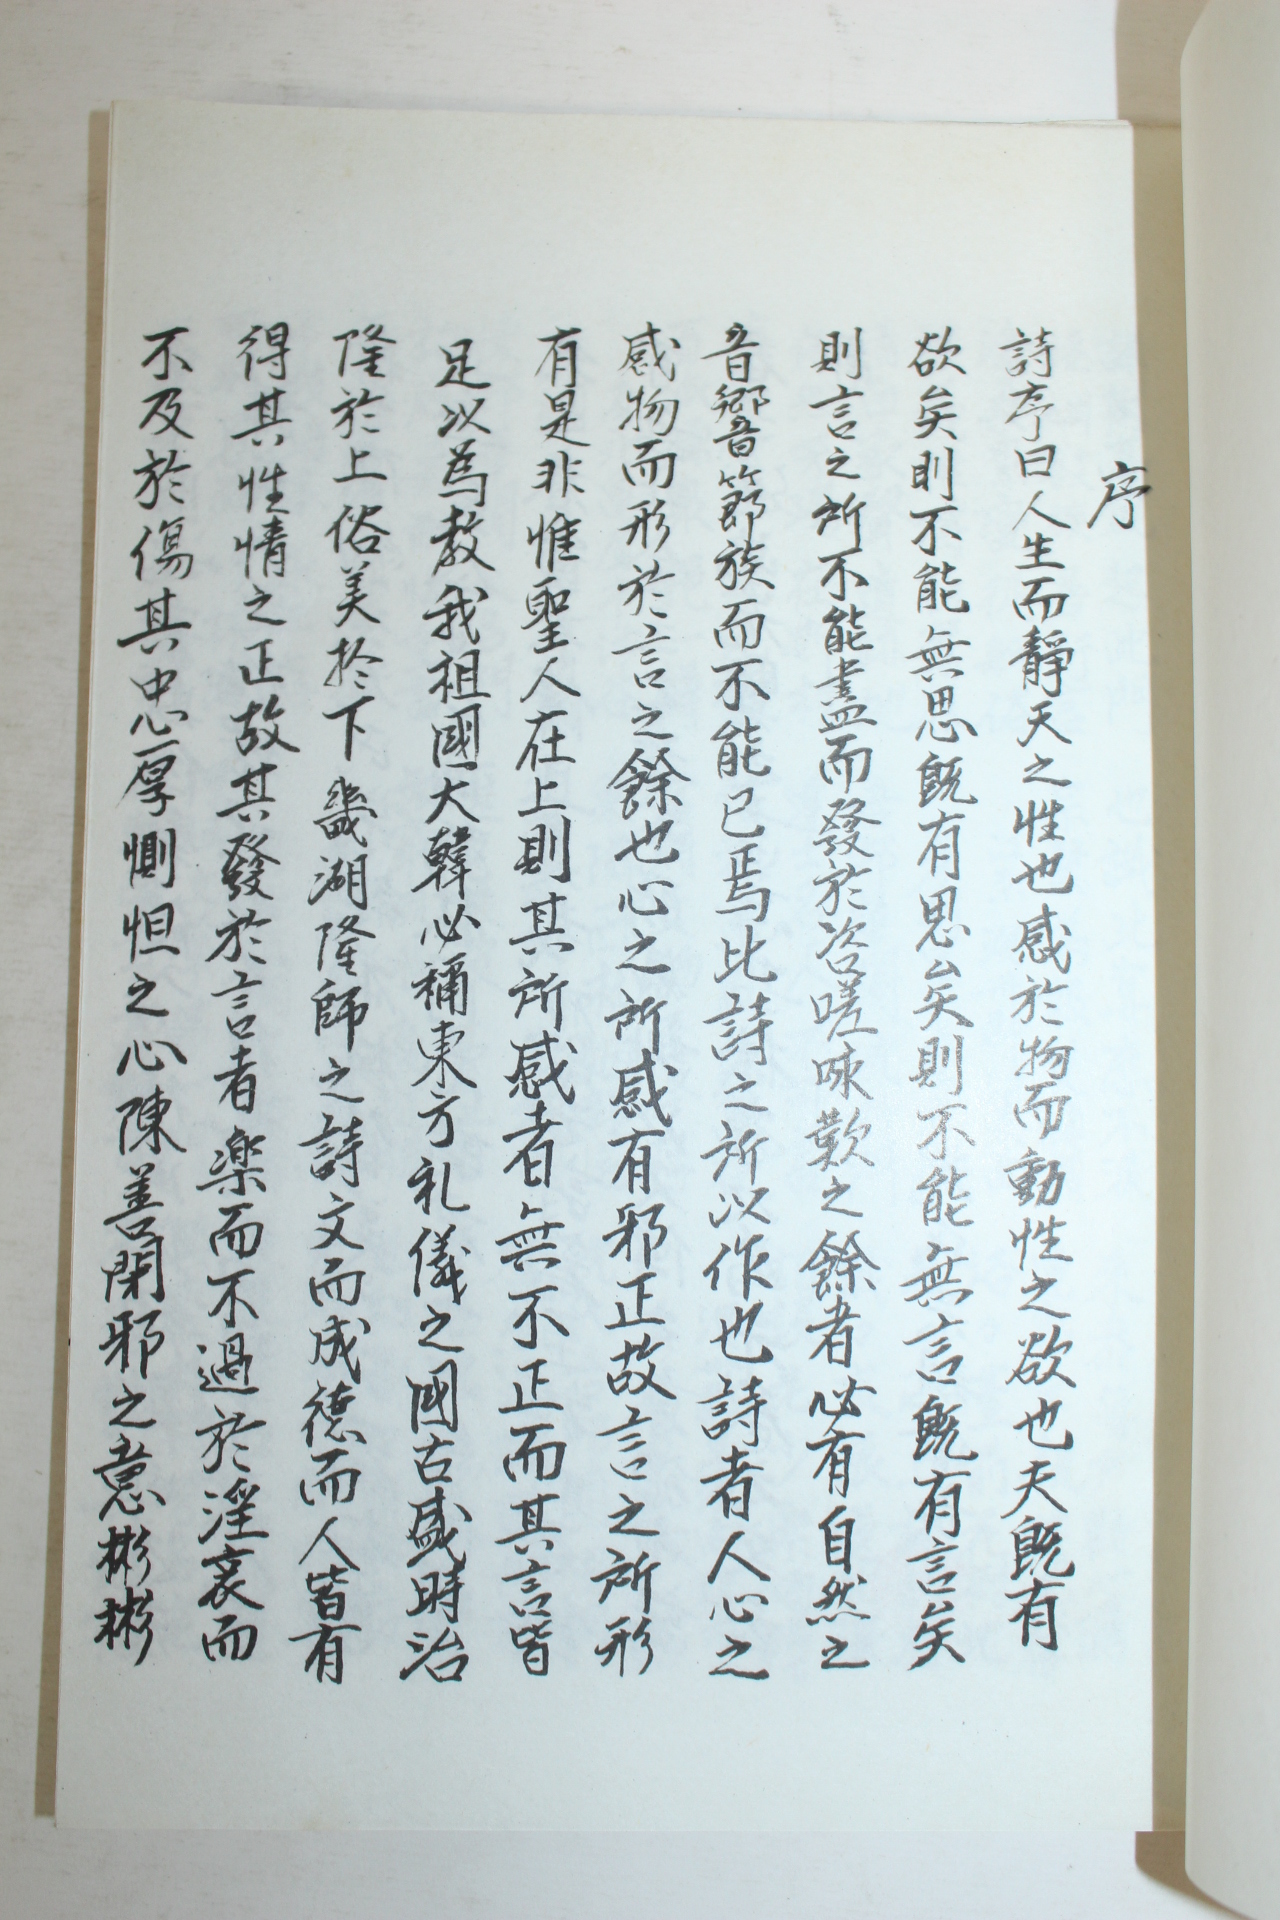 序
詩序曰人生而靜天之性也感於物而動性之欲也夫既有
欲矣則不能無思既有思矣則不能無言既有言矣
則言之所不能盡而發於咨嗟咏歎之餘者必有自然之
音響節族而不能已焉比詩之所以作也詩者人心之
感物而形於言之餘也心之所感有邪正故言之所形
有是非惟聖人在上則其所感者無不正而其言皆
足以為教我祖國大韓必稱東方礼儀之國古盛時治
隆於上俗美於下畿湖隆師之詩文而成德而人皆有
得其性情之正故其發於言者楽而不過於淫哀而
不及於傷其忠厚惻怛之心陳善閉邪之意彬彬